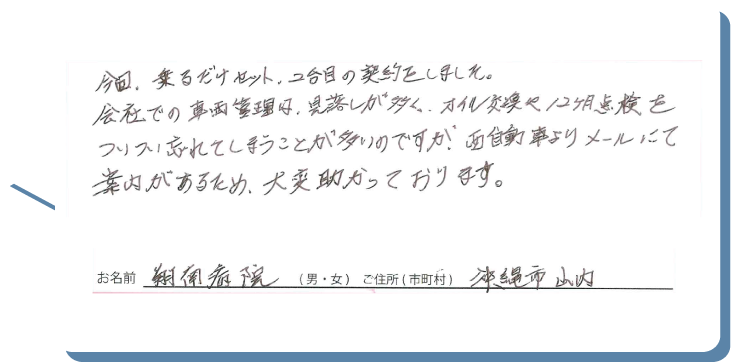 今回、乗るだけセット、2台目の契約をしました。
会社での車両管理は、見落しが多く、オイル交換や12ヶ月点検を
ついつい忘れてしまうことが多いのですが、西自動車よりメールにて
案内があるため、大変助かっております。
お名前 翔南病院 (男・女) ご住所(市町村) 沖縄市山内